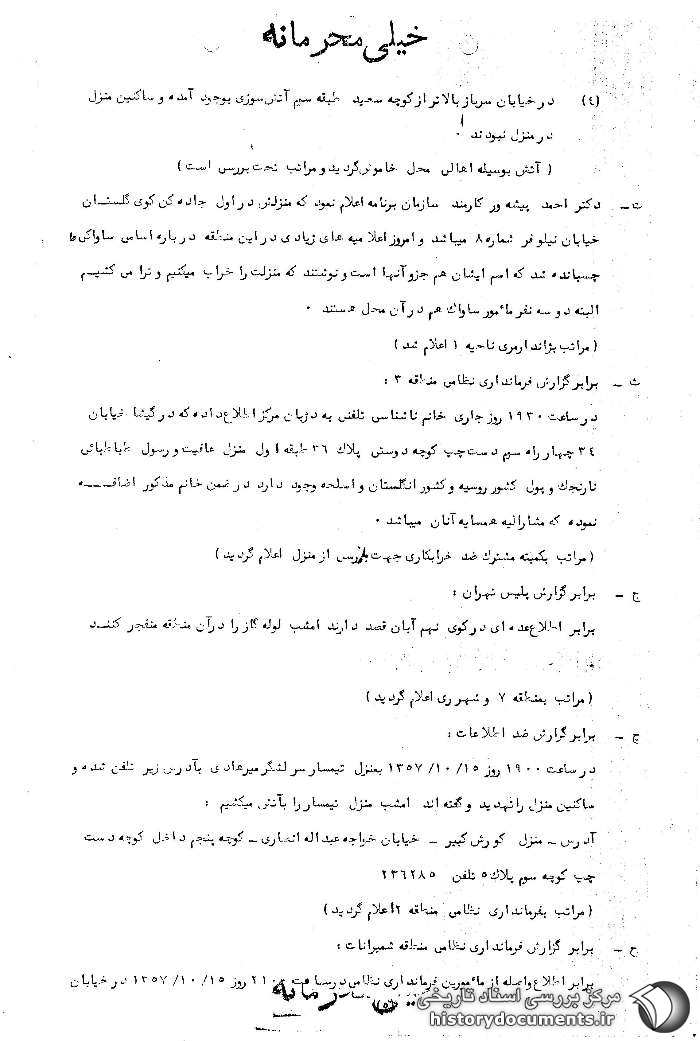 خیلی محرمانه
(٤) در خیابان سرباز بالاتر از کوچه سعید طبقه سیم آتش‌سوزی بوجود آمده و ساکنین منزل
در منزل نبودند .
( آتش بوسیله اهالی محل خاموش گردید و مراتب تحت بررسی است )
ت ـ دکتر احمد پیشه ور کارمند سازمان برنامه اعلام نمود که منزلش در اول جاده کن کوی گلستان
خیابان نیلوفر شماره ۸ میباشد و امروز اعلامیه های زیادی در این منطقه درباره اسامی ساواکی ها
چسبانده شد که اسم ایشان هم جزو آنها است و نوشتند که منزلت را خراب میکنیم و ترا می کشیم
البته دو سه نفر مأمور ساواک هم در آن محل هستند .
( مراتب بژاندارمری ناحیه ۱ اعلام شد )
ث ـ برابر گزارش فرمانداری نظامی منطقه ۳ :
در ساعت ۱۹۳۰ روز جاری خانم ناشناسی تلفنی به دژبان مرکز اطلاع داده که در گیشا خیابان
۳٤ چهار راه سیم دست چپ کوچه دوستی پلاک ۳٦ طبقه اول منزل عافیت و رسول طباطبائی
نارنجک و پول کشور روسیه و کشور انگلستان و اسلحه وجود دارد در ضمن خانم مذکور اضافـــه
نموده که مشارالیه همسایه آنان میباشد .
( مراتب بکمیته مشترک ضد خرابکاری جهت بازرسی از منزل اعلام گردید )
ج ـ برابر گزارش پلیس تهران :
برابر اطلاع عده ای در کوی نهم آبان قصد دارند امشب لوله گاز را در آن منطقه منفجر کننــد
.
( مراتب بمنطقه ۷ و شهر ری اعلام گردید )
چ ـ برابر گزارش ضد اطلاعات :
در ساعت ۱۹۰۰ روز ۱۵ /۱۰ /۱۳۵۷ بمنزل تیمسار سرلشگر میرهادی بآدرس زیر تلفن شده و
ساکنین منزل را تهدید و گفته اند امشب منزل تیمسار را بآتش میکشیم :
آدرس ـ منزل کورش کبیر ـ خیابان خواجه عبداله انصاری ـ کوچه پنجم داخل کوچه دست
چپ کوچه سوم پلاک ۵ تلفن ۲۳٦۲۸۵
( مراتب بفرمانداری نظامی منطقه ۲ اعلام گردید )
ح ـ برابر گزارش فرمانداری نظامی منطقه شمیرانات :
برابر اطلاع واصله از مأمورین فرمانداری نظامی در ساعت ۲۱۰۰ روز ۱۵ /۱۰ /۱۳۵۷ در خیابان
مرکز بررسی اسناد تاریخی
historydocuments.ir